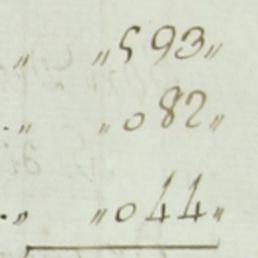 „ „593„
.„ „082„
.„ „044„